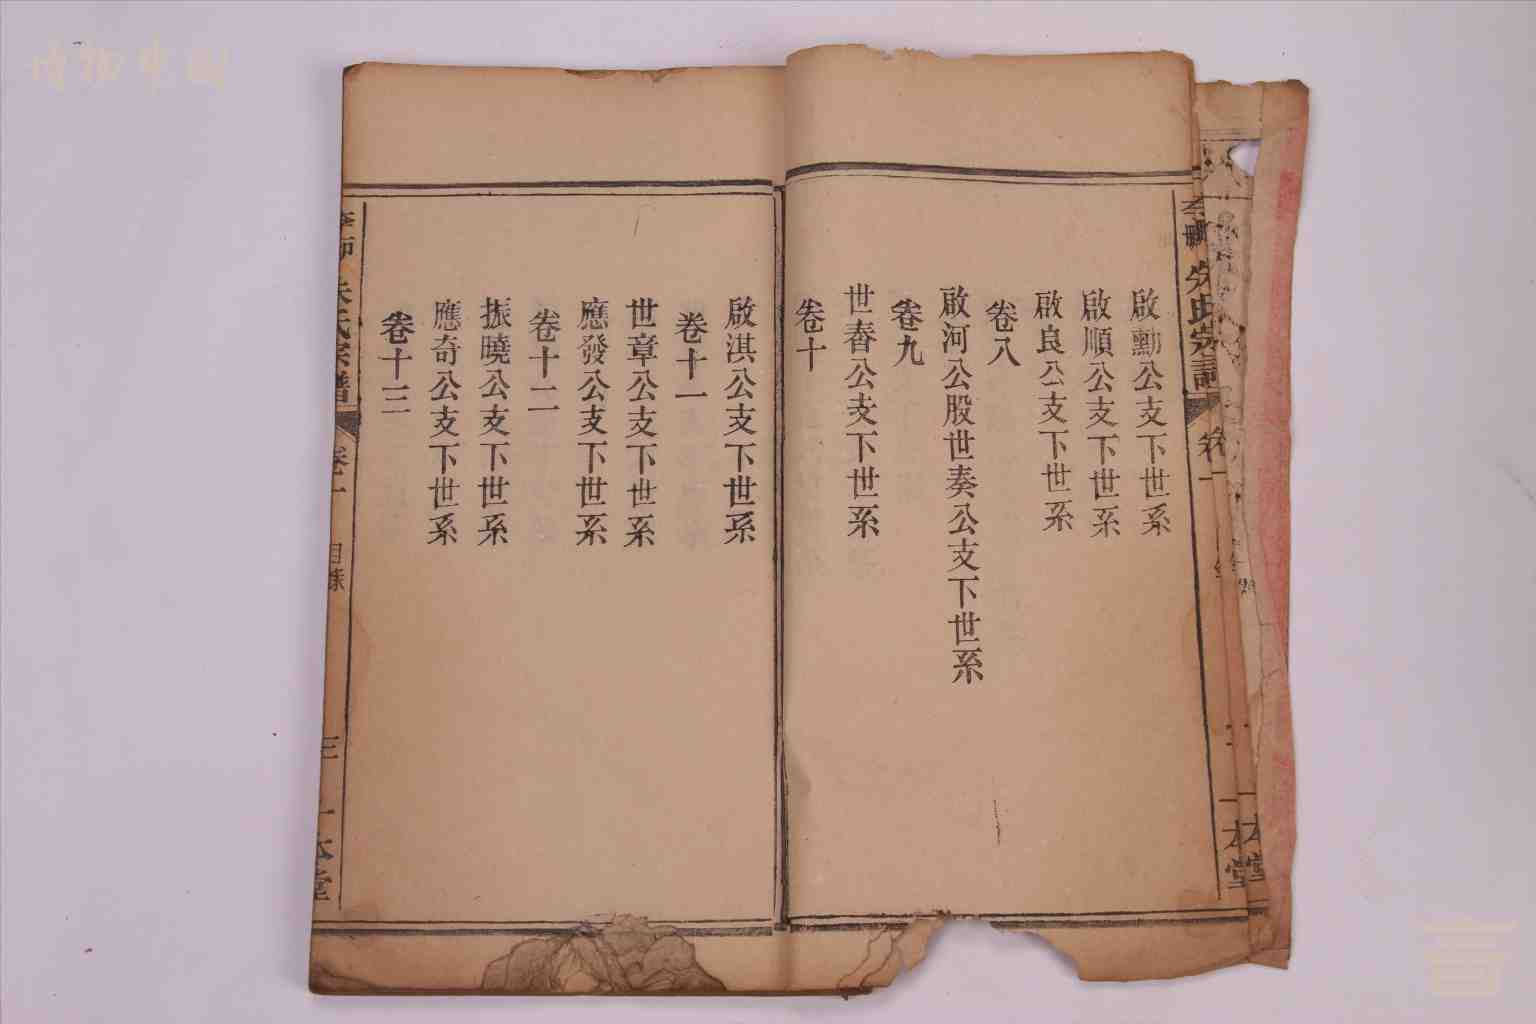 啟勳公支下世系
啟順公支下世系
啟良公支下世系
卷八
啟河公股世奏公支下世系
卷九
世春公支下世系
卷十
啟淇公支下世系
卷十一
世章公支下世系
應發公支下世系
卷十二
振曉公支下世系
應奇公支下世系
卷十三
朱氏宗譜
目錄
三
一本堂